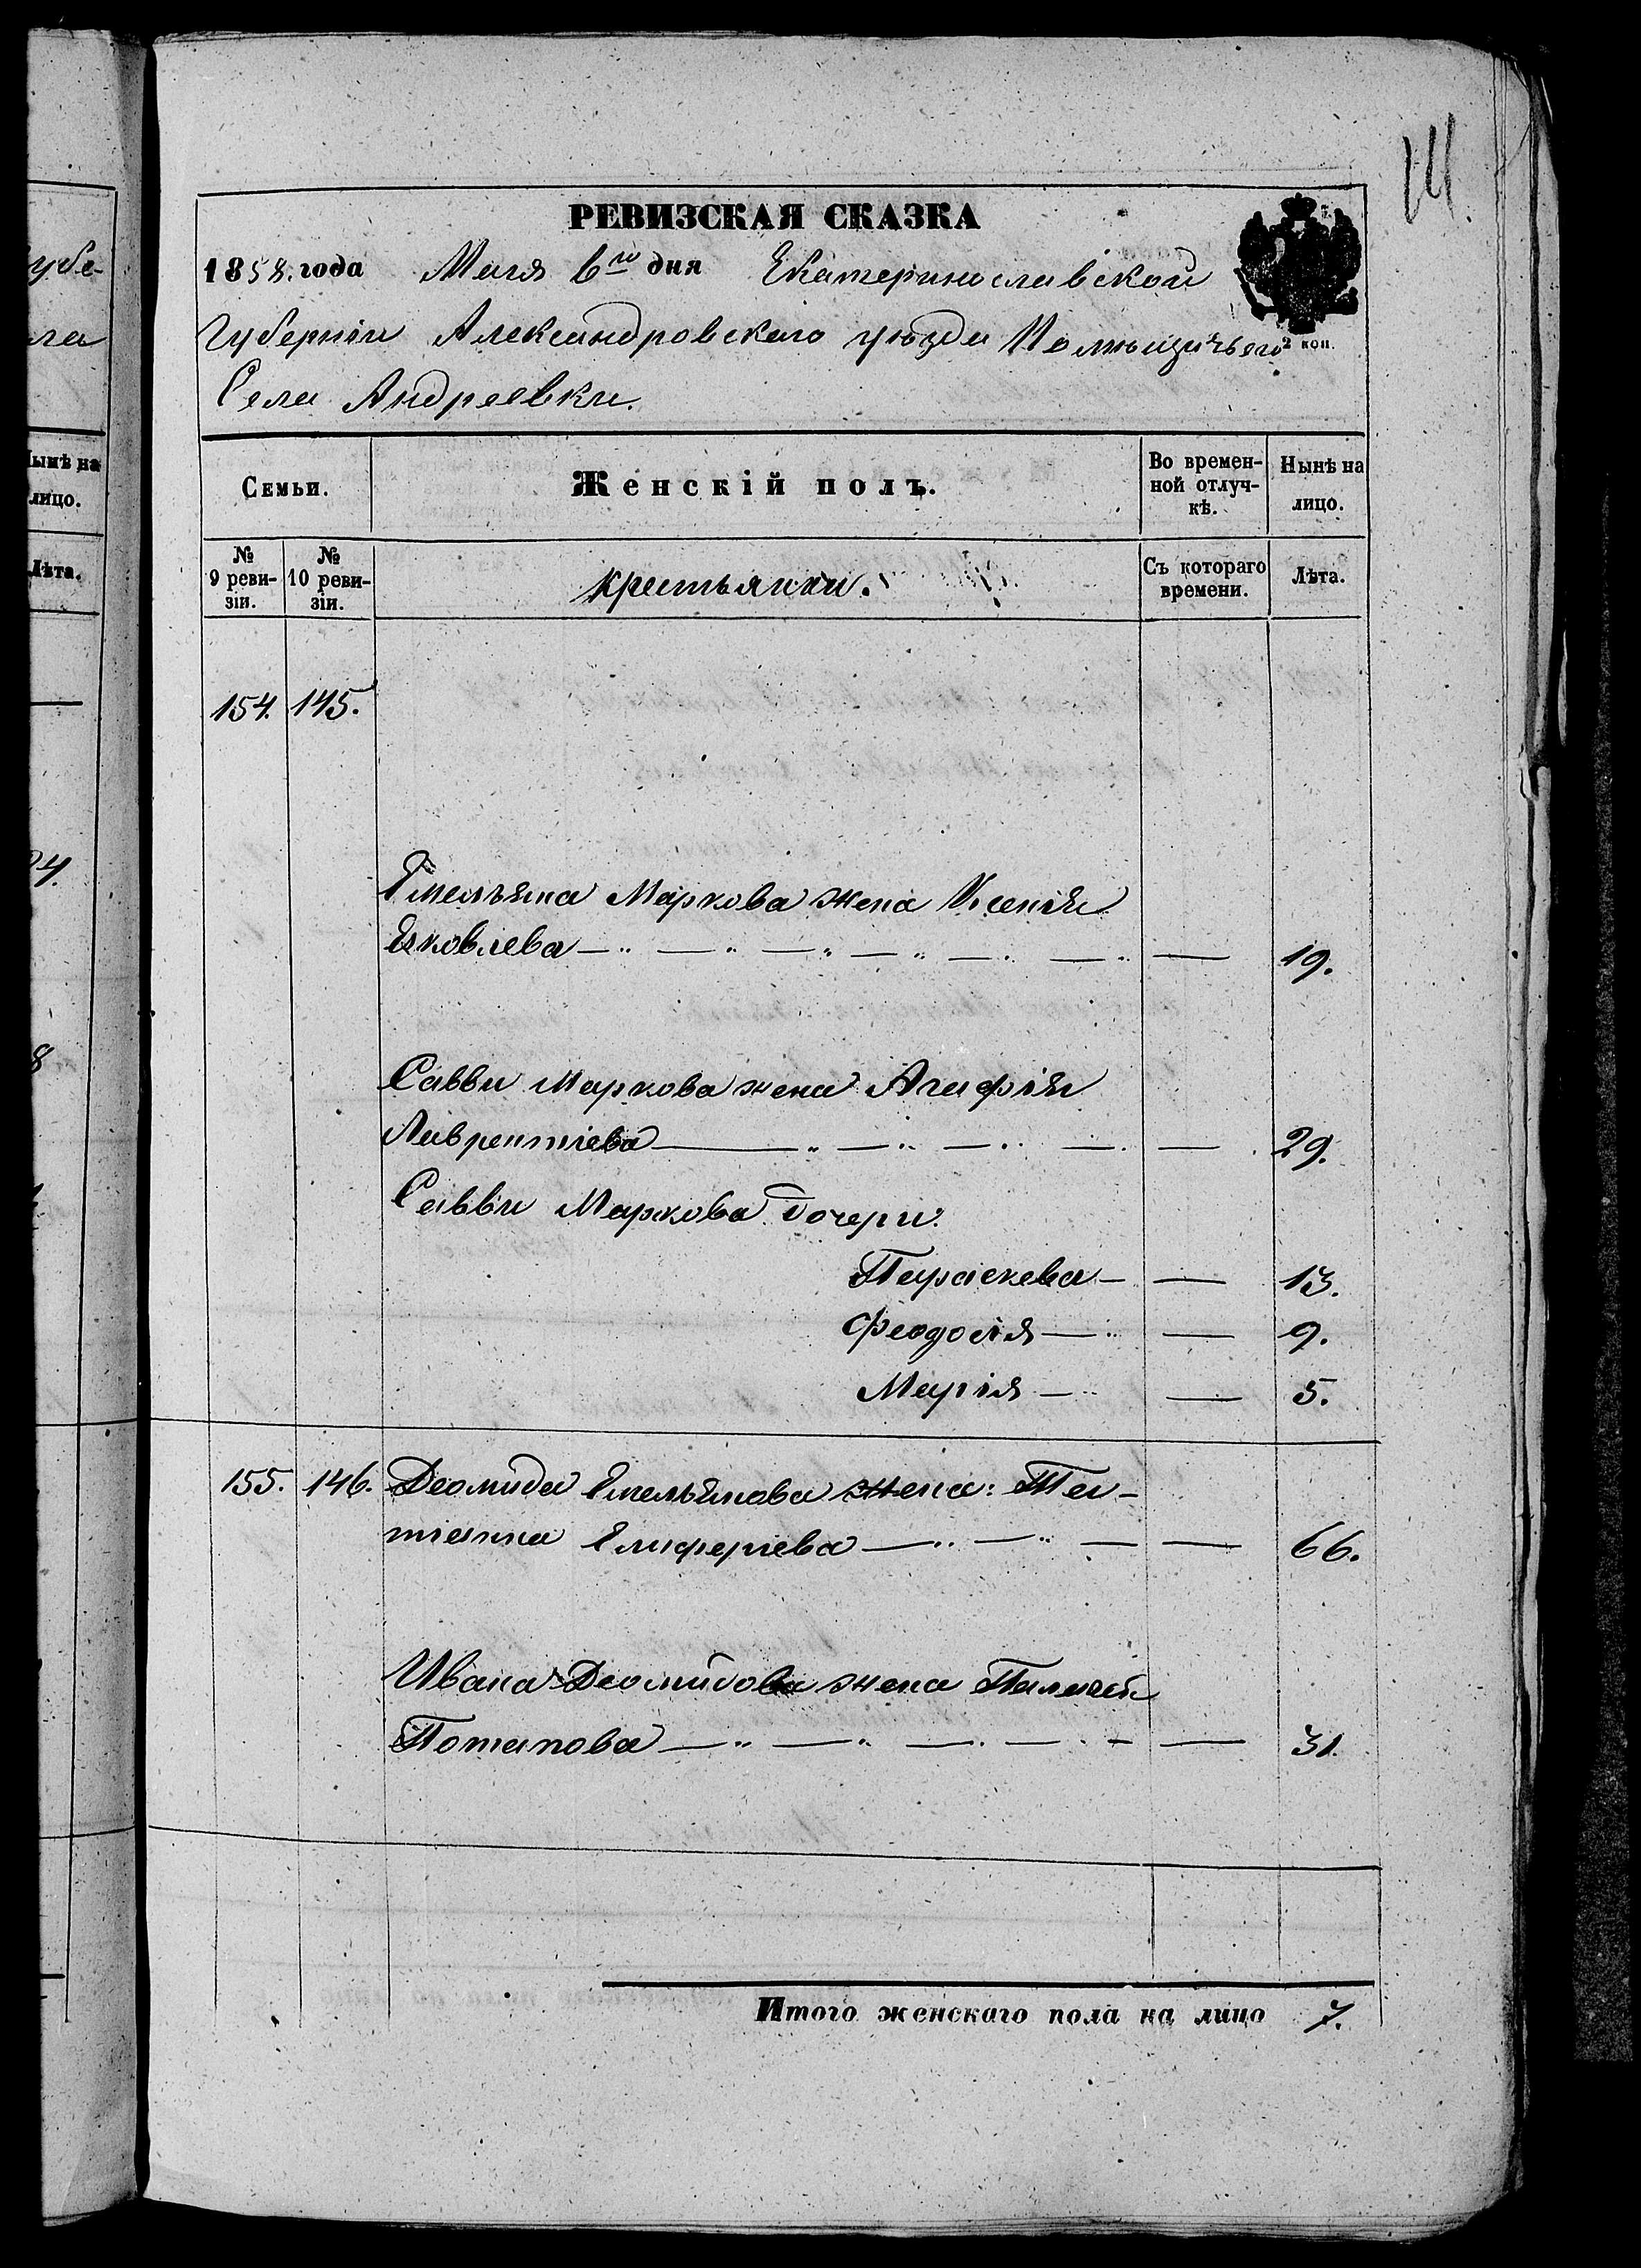 убе-
ла
Нынѣ на
лицо.
Лѣта.
24.
8
14.
РЕВИЗСКАЯ СКАЗКА
1858. года Мая 6го дня Екатеринославской
Губерніи Александровскаго уѣзда Помѣщичьяго
2 коп.
Села Андреевки.
Семьи.
Женскій полъ.
Во времен-
ной отлуч-
кѣ.
Нынѣ на
лицо.
№
9 реви-
зіи.
№
10 реви-
зіи.
крестьянки.
Съ котораго
времени.
Лѣта.
154. 145.
Емельяна Маркова жена Ксенія
Яковлева — — 19.
Саввы Маркова жена Агафія
Лаврентіева — — 29.
Саввы Маркова дочери:
Параскева — — 13.
Феодосія — — 9.
Марія — — 5.
155. 146. Деомида Емельянова жена: Та-
тіанна Елиферіева — — 66.
Ивана Деомидова жена Пелагея
Потапова — — 31.
Итого женскаго пола на лицо 7.